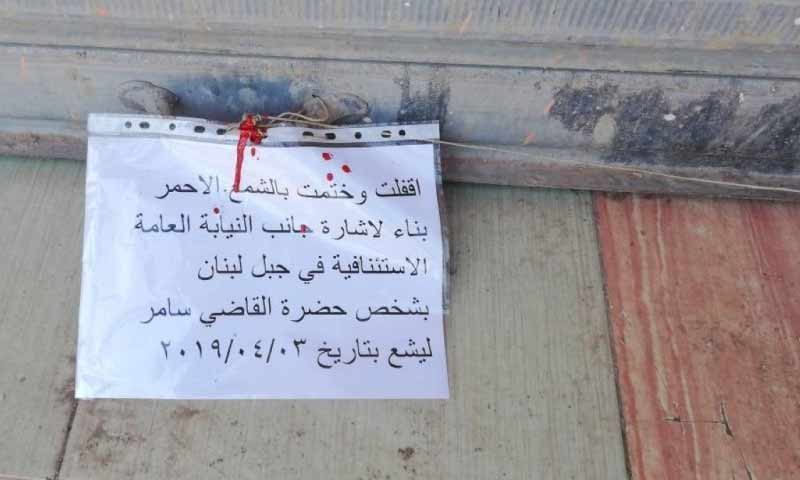 اقفلت وختمت بالشمع الاحمر
بناء لاشارة جانب النيابة العامة
الاستئنافية في جبل لبنان
بشخص حضرة القاضي سامر
ليشع بتاريخ ٢٠١٩/٠٤/٠٣